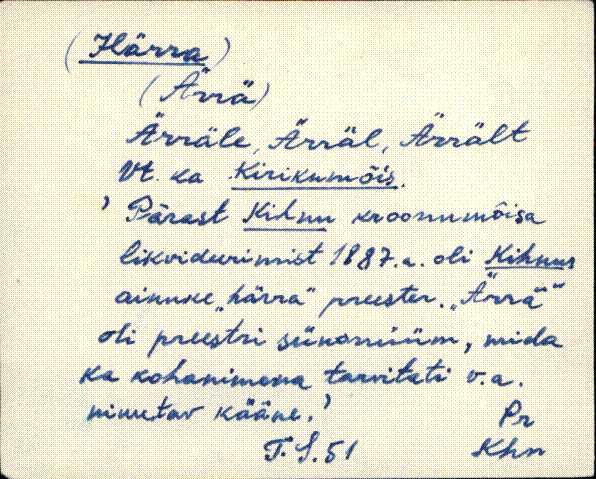 (Härra)
(Ärrä)
Ärräle, Ärräl, Ärrält
Vt. ka Kirikumõis.
' Pärast Kihnu kroonumõisa
likvideerimist 1887.a. oli Kihnus
ainuke „härra" preester. „Ärrä"
oli preestri sünonüüm, mida
ka kohanimena tarvitati v.a.
nimetav kääne.'
Pr
T.S.51 Khn